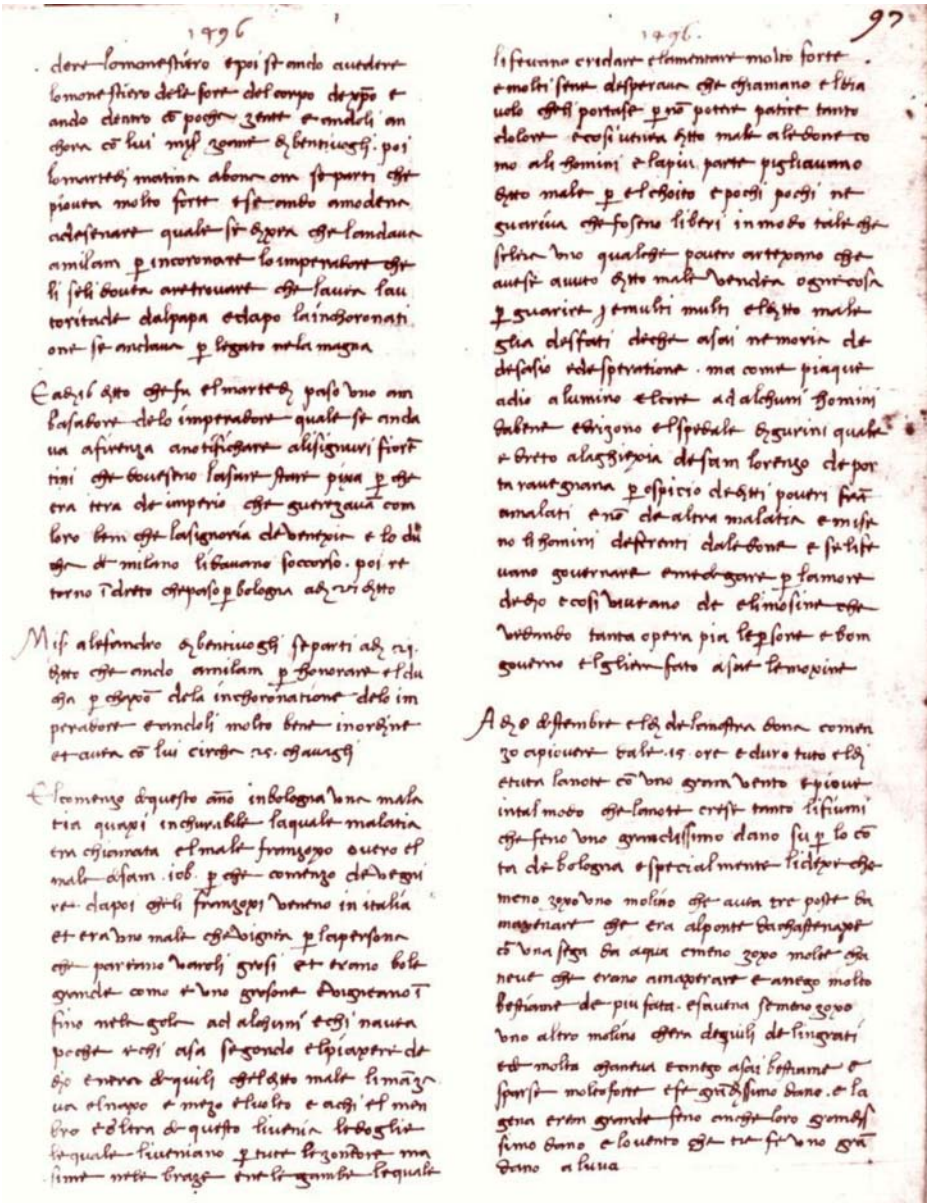 1496
dere lomonestiero epoi se ando avedere
lomonestiero dele sore del corpo de xpo e
ando dentro cō poche zente e andoli an
chora cō lui mis zoane d bentivoglj. poi
lomartedj matina abona ora se parti che
pioveva molto forte e se ando amodena
adesenare quale se dixea che landava
amilam p incoronare lo imperadore che
li seli doveva aretrovare che lavea lau
toritade dalpapa edapo lainchoronati
one se andava p legato nela magna
E adj 16 dtto che fu el martedj paso uno am
basadore delo imperadore quale se anda
va afirenza anotifichare alisignuri fiorē
tini che doveseno lasare stare pixa p che
era tera de imperio che guerezavā com
loro ben che lasignoria de venexia e lo du
cha de milano li davano soccorso. poi re
torno ī dreto che paso p bologna adj 21 dtto
Mis alesandro d bentivoglj se parti adj 21.
dtto che ando amilam p honorare el du
cha p chaxō dela inchoronatione delo im
peradore e andoli molto bene inordine
et avea cō lui circha 25. chavaglj
El comenzo de questo año in bologna una mala
tia quaxi inchurabile laquale malatia
era chiamata el male franzoxo overo el
male de sam. iob. p che comenzo de vegni
re dapoi cheli franzoxi veneno in italia
et era uno male che vignia p la persona
che pareano varoli grosi et erano bole
grande como e uno grosone e vigneano ī
fino nela gola ad alchuni e chi navea
poche e chi asa segondo el piaxere de
dio e nera de quili chel dtto male li manza
va el naxo e mezo el volto e a chi el mem
bro e oltra de questo li venia le doglie
le quale li veniano p tute le zonture ma
sime nele braze e ne le gambe le quale
1496.
97
li fevano cridare e lamentare molto forte
e molti sene desperava che chiamano el dia
volo cheli portase p nō potere patire tanto
dolore e cosi veniva dtto male ale done co
mo ali homini e la piu parte pigliavano
dtto male p el choito e pochi pochi ne
guariva che foseno liberi in modo tale che
selera uno qualche povero artexano che
avese avuto dtto male vendea ogne cosa
p guarire e multi multi el dtto male
glia desfati de che asai ne moria de
desasio e desperatione. ma come piaque
adio alumino el core ad alchuni homini
dabene e drizono el spedale d gurini quale
e dreto ala ghiexia de sam lorenzo de por
ta ravegnana p ospicio de dtti poveri frā
amalati e nō de altra malatia e mise
no li homini deferenti dale done e se li fe
vano governare e medegare p lamore
de dio e cosi viveano de elimosine che
vedando tanta opera pia le psone e bom
governo el glien fato asae lemoxine
Adj 8 de setembre el dj de la nostra dona comen
zo a piovere dale. 15. ore e duro tuto el dj
e tuta la note cō uno gram vento e piove
in tal modo che la note crese tanto li fiumi
che feno uno grandissimo dano su p lo cō
ta de bologna especialmente lidexe che
meno zoxo uno molino che avea tre poste da
maxenare che era al ponte da chastenaxe
cō una sega da aqua e meno zoxo molte cha
neve che erano a maxerare e anego molto
bestiame de piu fata. e savena se meno zoxo
uno altro molino chera de quili de lingrati
ede molta chaneva e anego asai bestiame e
sparse molto forte e fe grādissimo dano. e la
gena erem grande feno anche loro grandis
simo dano e lo vento che tre fe uno grā
dano a luva